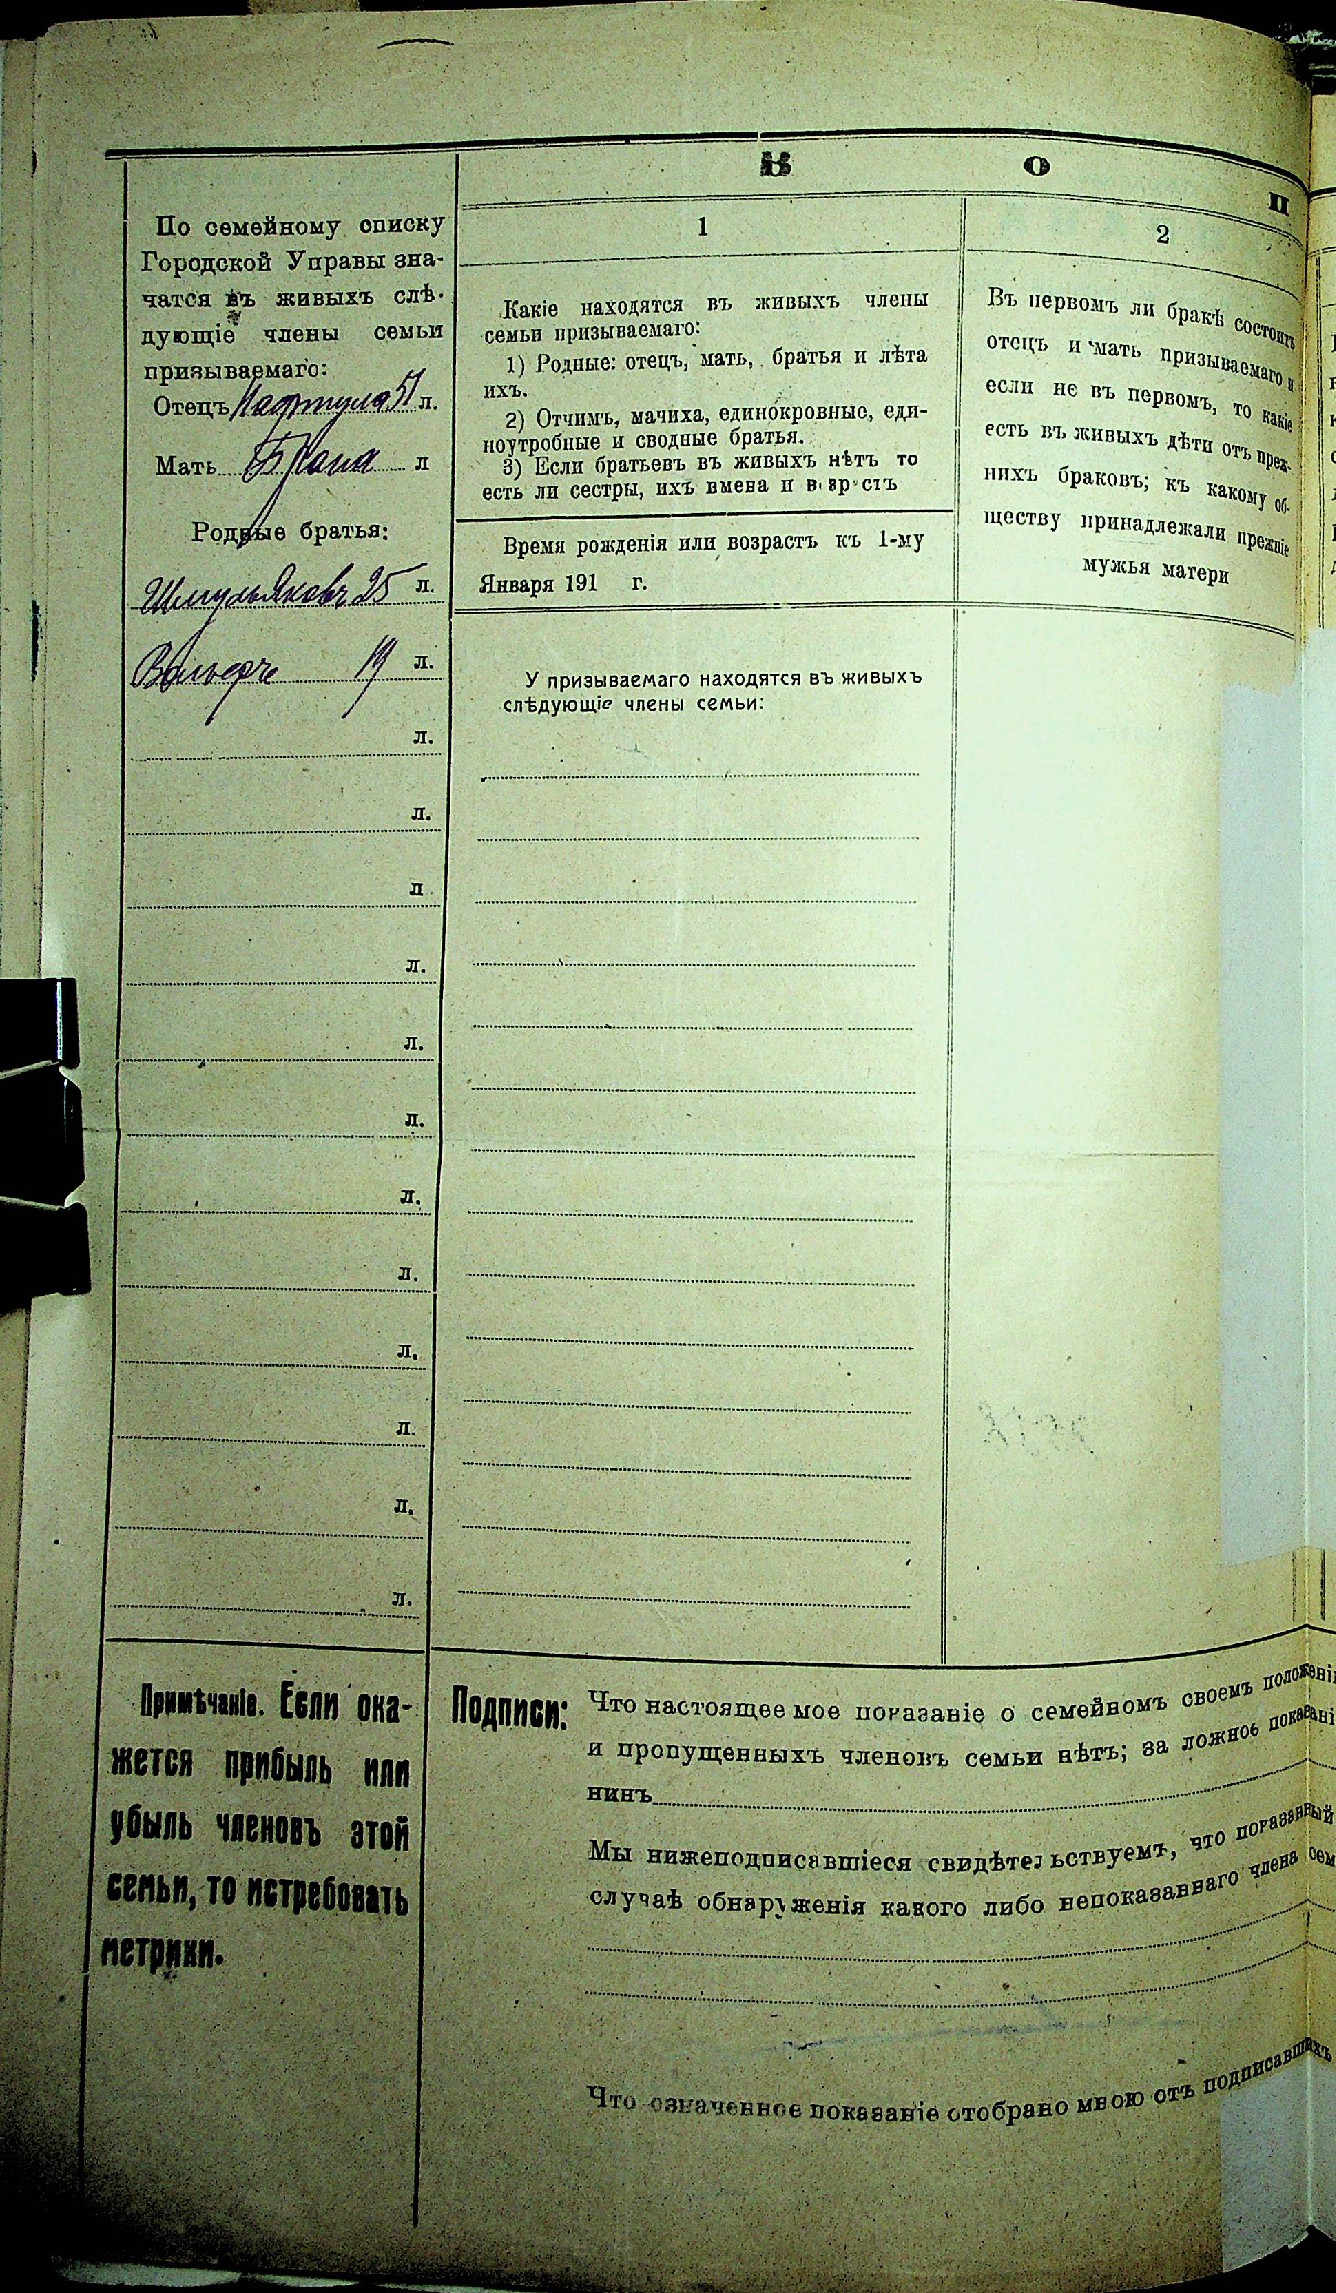 В О П
По семейному списку
Городской Управы зна-
чатся въ живыхъ слѣ-
дующіе члены семьи
призываемаго:
Отецъ Нафтула 51 л.
Мать Брона л
Родные братья:
Шмуль Яковъ 25 л.
Вольфъ 19 л.
л.
л.
л
л.
л.
л.
л.
л.
л.
л.
л.
л.
1
Какіе находятся въ живыхъ члены
семьи призываемаго:
1) Родные: отецъ, мать, братья и лѣта
ихъ.
2) Отчимъ, мачиха, единокровные, еди-
ноутробные и сводные братья.
3) Если братьевъ въ живыхъ нѣтъ то
есть ли сестры, ихъ имена и
Время рожденія или возрастъ къ 1-му
Января 191 г.
У призываемаго находятся въ живыхъ
слѣдующіе члены семьи:
2
Въ первомъ ли бракѣ состоитъ
отецъ и мать призываемаго и
если не въ первомъ, то какіе
есть въ живыхъ дѣти отъ преж-
нихъ браковъ; къ какому об-
ществу принадлежали прежніе
мужья матери
Примѣчаніе. Если ока-
жется прибыль или
убыль членовъ этой
семьи, то истребовать
метрики.
Подписи: Что настоящее мое показаніе о семейномъ своемъ положені
и пропущенныхъ членовъ семьи нѣтъ; за ложное показані
нинъ
Мы нижеподписавшіеся свидѣтельствуемъ, что показанный
случаѣ обнаруженія какого либо непоказаннаго члена сем
Что означенное показаніе отобрано мною отъ подписавшихъ